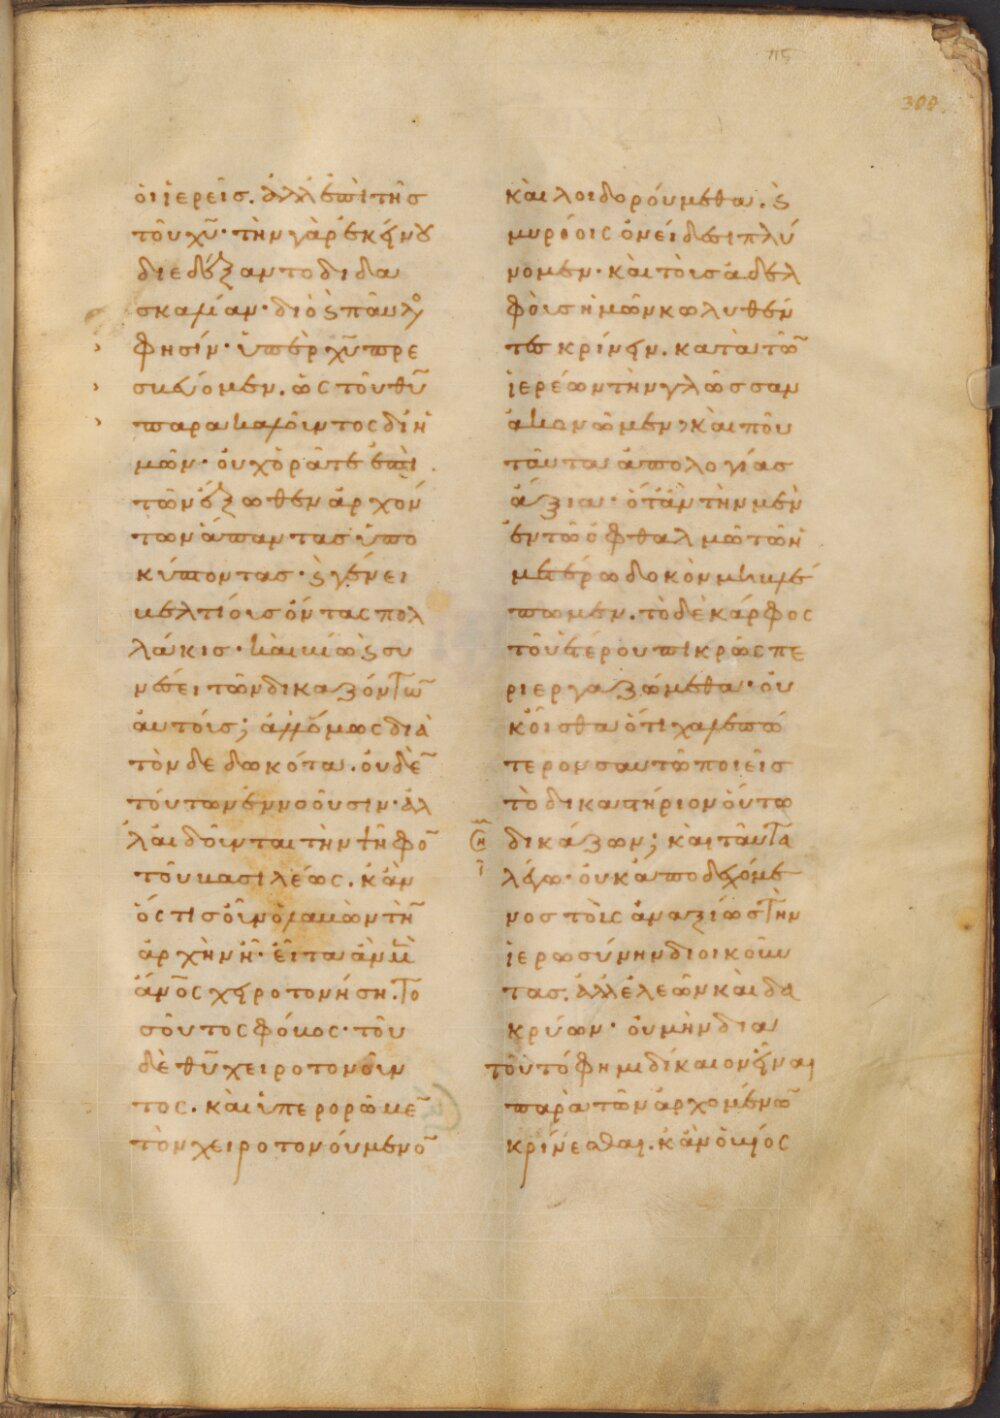 115
300
οἱ ἱερεῖσ. ἀλλ ἐπὶ τῆσ
τοῦ χῦ· τὴν γὰρ ἐκείνου
διεδέξαντο διδα
σκαλίαν· διὸ ϛ παῦλο
φησίν· ὑπὲρ χῦ πρε
σβεύομεν. ὡς τοῦ θῦ
παρακαλοῦντος δι ἡ
μῶν· οὐχ ὁρᾶτε ἐπὶ
τῶν ἔξωθεν ἀρχόν
των ἅπαντασ ὑπο
κύπτοντασ· ϛ γένει
βελτίοισ ὄντας πολ
λάκισ· καὶ βίω ϛ συ
νέσει τῶν δικαζόντων
αὐτοίσ; ἀλλ ὅμως διὰ
τὸν δεδωκότα. οὐδὲν
τούτων ἐννοοῦσιν· ἀλ
λ αἰδοῦνται τὴν ψῆφον
τοῦ βασιλέως. κἂν
ὅς τισ οὖν ὁ λαβὼν τὴν
ἀρχὴν ἦ· εἶτα ἂν μὲν
ἄνος χειροτονήση. το
σοῦτος φόβος· τοῦ
δὲ θῦ χειροτονοῦν
τος. καὶ ὑπερορῶμεν
τὸν χειροτονούμενον
καὶ λοιδορούμεθα. ϛ
μυρίοις ὀνείδεσι πλύ
νομεν· καὶ τοῖσ ἀδελ
φοῖσ ἡμῶν κωλυθέν
τεσ κρίνειν. κατὰ τῶν
ἱερέων τὴν γλῶσσαν
ἀκονῶμεν· καὶ ποῦ
ταῦτα ἀπολογίασ
ἄξια· ὅτἂν τὴν μὲν
ἐν τῶ ὀφθαλμῶ τῶ ἡ
μετέρω δοκὸν μὴ βλέ
πωμεν. τὸ δὲ κάρφος
τοῦ ἑτέρου πικρῶς πε
ριεργαζώμεθα· οὐ
κ οἶσθα ὅτι χαλεπώ
τερον σαυτῶ ποιεῖσ
τὸ δικαστήριον οὕτω
δικάζων; καὶ ταῦτα
λέγω· οὐκ ἀποδεχόμε
νος τοὺς ἀναξίωσ τὴν
ἱερωσύνην διοικοῦν
τασ. ἀλλ ἐλεῶν καὶ δα
κρύων· οὐ μὴν δια
τοῦτό φημι δίκαιον εἶναι
παρὰ τῶν ἀρχομένων
κρίνεσθαι. κἂν ὁ βίος